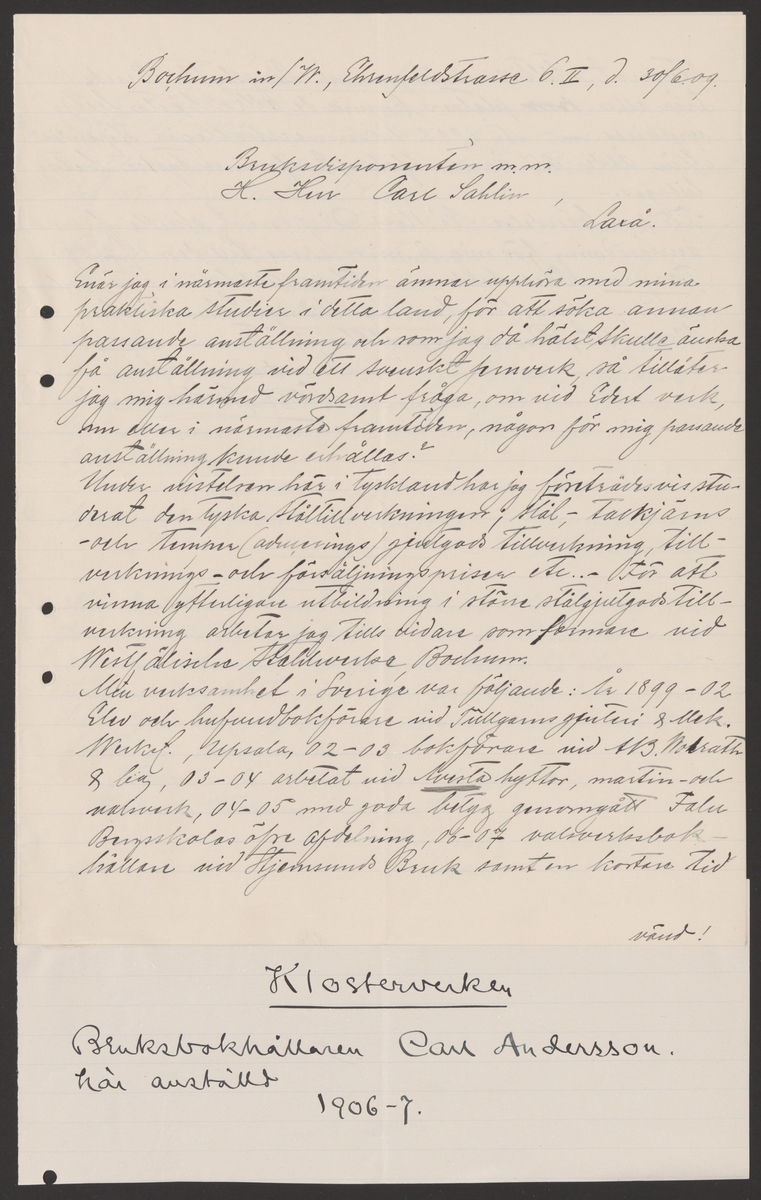 Bochum in/W., Ehrenfeldstrasse 6. II, d. 30/6.09.
Bruksdisponenten m.m.
H. Herr Carl Sahlin,
Laxå.
Enär jag i närmaste framtiden ämnar upphöra med mina
praktiska studier i detta land, för att söka annan
passande anställning och som jag då hälst skulle önska
få anställning vid ett svenskt jernverk, så tillåter
jag mig härmed vördsamt fråga, om vid Edert verk,
nu eller i närmaste framtiden, någon för mig passande
anställning kunde erhållas?
Under vistelsen här i Tyskland har jag företrädesvis stu-
derat den tyska ståltillverkningen; stål-, tackjärns
-och temper (aducerings) gjutgods tillverkning, till-
verknings- och försäljningspriser etc..- För att
vinna ytterligare utbildning i större stålgjutgodstill-
verkning arbetar jag tills vidare som formare vid
Westfälische Stahlwerke Bochum.
Min verksamhet i Sverige var följande: År 1899-02
Elev och hufvudbokförare vid Tullgarns gjuteri & Mek.
Werkst., Upsala, 02-03 bokförare vid AB. Wolrath
& Co, 03-04 arbetat vid Avesta hyttor, martin- och
valsverk, 04-05 med goda betyg genomgått Falu
Bergsskolas öfre afdelning, 06-07 valsverksbok-
hållare vid Stjernsunds Bruk samt en kortare tid
vänd!
Klosterverken
Bruksbokhållaren Carl Andersson.
här anställd
1906-7.